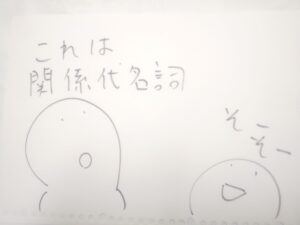 これは
関係代名詞
そー
そー